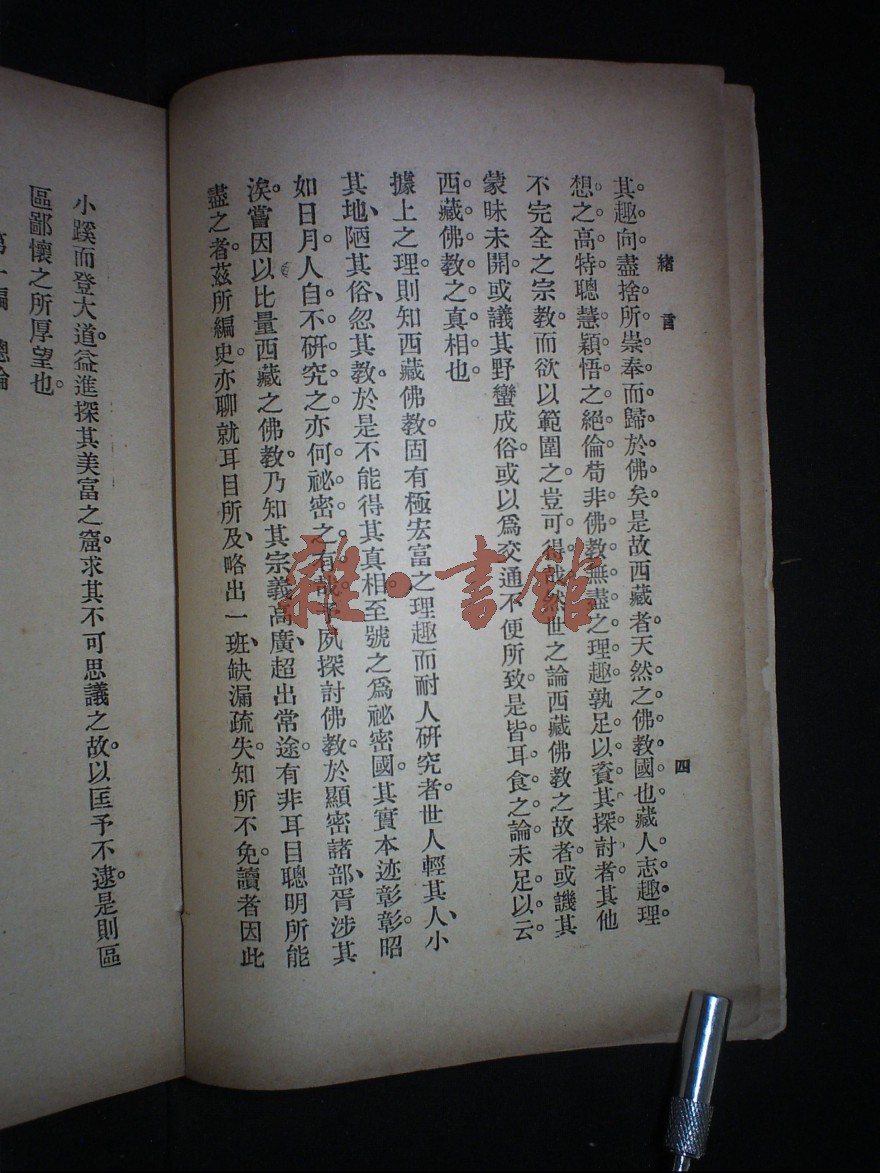 緒言
四
其趣向盡捨所崇奉而歸於佛矣。是故西藏者天然之佛教國也藏人志趣理
想之高特聰慧穎悟之絕倫苟非佛教無盡之理趣孰足以資其探討者其他
不完全之宗教而欲以範圍之。豈可得哉然世之論西藏佛教之故者或譏其
蒙昧未開。或議其野蠻成俗或以爲交通不便所致是皆耳食之論未足以云
西藏佛教之真相也
據上之理則知西藏佛教。固有極宏富之理趣而耐人研究者世人輕其人、小
其地、陋其俗、忽其教於是不能得其真相。至號之爲祕密國。其實本迹彰彰昭
如日月。人自不研究之亦何祕密之有哉予夙探討佛教於顯密諸部、胥涉其
涘。嘗因以比量西藏之佛教乃知其宗義高廣、超出常途有非耳目聰明所能
盡之者。茲所編史。亦聊就耳目所及、略出一班、缺漏疏失。知所不免讀者因此
小蹊而登大道。益進探其美富之窟。求其不可思議之故。以匡予不逮。是則區
區鄙懷之所厚望也。
第一編 總論
雜·書館